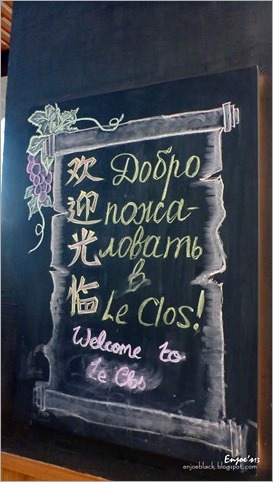 欢迎光临
Добро
пожа-
ловать
в
Le Clos!
Welcome to
Le Clos
Enjoe's
enjoeblack.blogspot.com